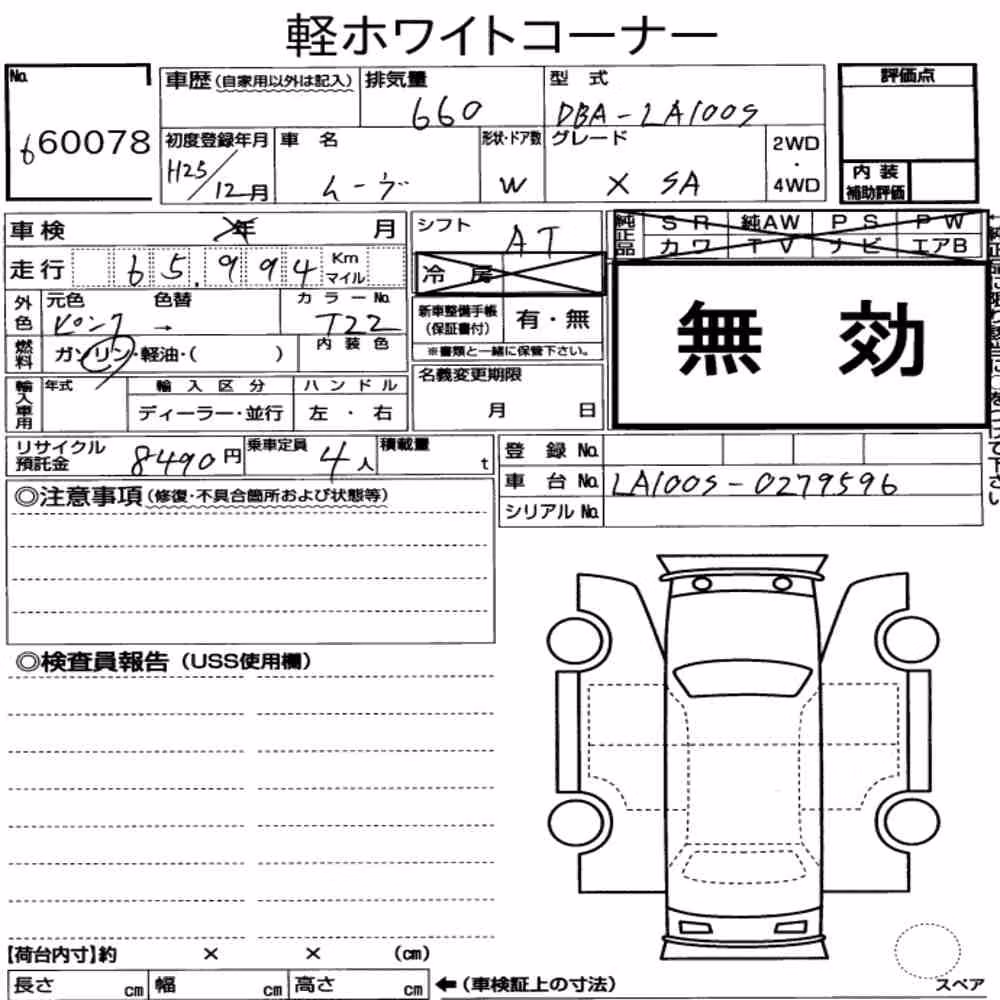 軽ホワイトコーナー
No. 660078
車歴（自家用以外は記入） 排気量 660 型式 DBA-LA100S
評価点
初度登録年月 H25/12月 車名 ムーヴ 形状・ドア数 W グレード X SA 2WD・4WD
内装補助評価
車検 年 月 シフト AT
純正品 SR 純AW PS PW
カワ TV ナビ エアB
走行 65,994 Km マイル 冷房
外色 元色 ピンク → 色替 カラーNo. T22
新車整備手帳（保証書付） 有・無
※書類と一緒に保管下さい。
無効
燃料 ガソリン・軽油・( ) 内装色
輸入車用 年式 輸入区分 ハンドル
ディーラー・並行 左・右
名義変更期限
月 日
リサイクル預託金 8490円 乗車定員 4人 積載量 t
登録No.
車台No. LA100S-0279596
シリアルNo.
◎注意事項（修復・不具合箇所および状態等）
◎検査員報告（USS使用欄）
【荷台内寸】約 × × (cm)
長さ cm 幅 cm 高さ cm ←（車検証上の寸法）
スペア